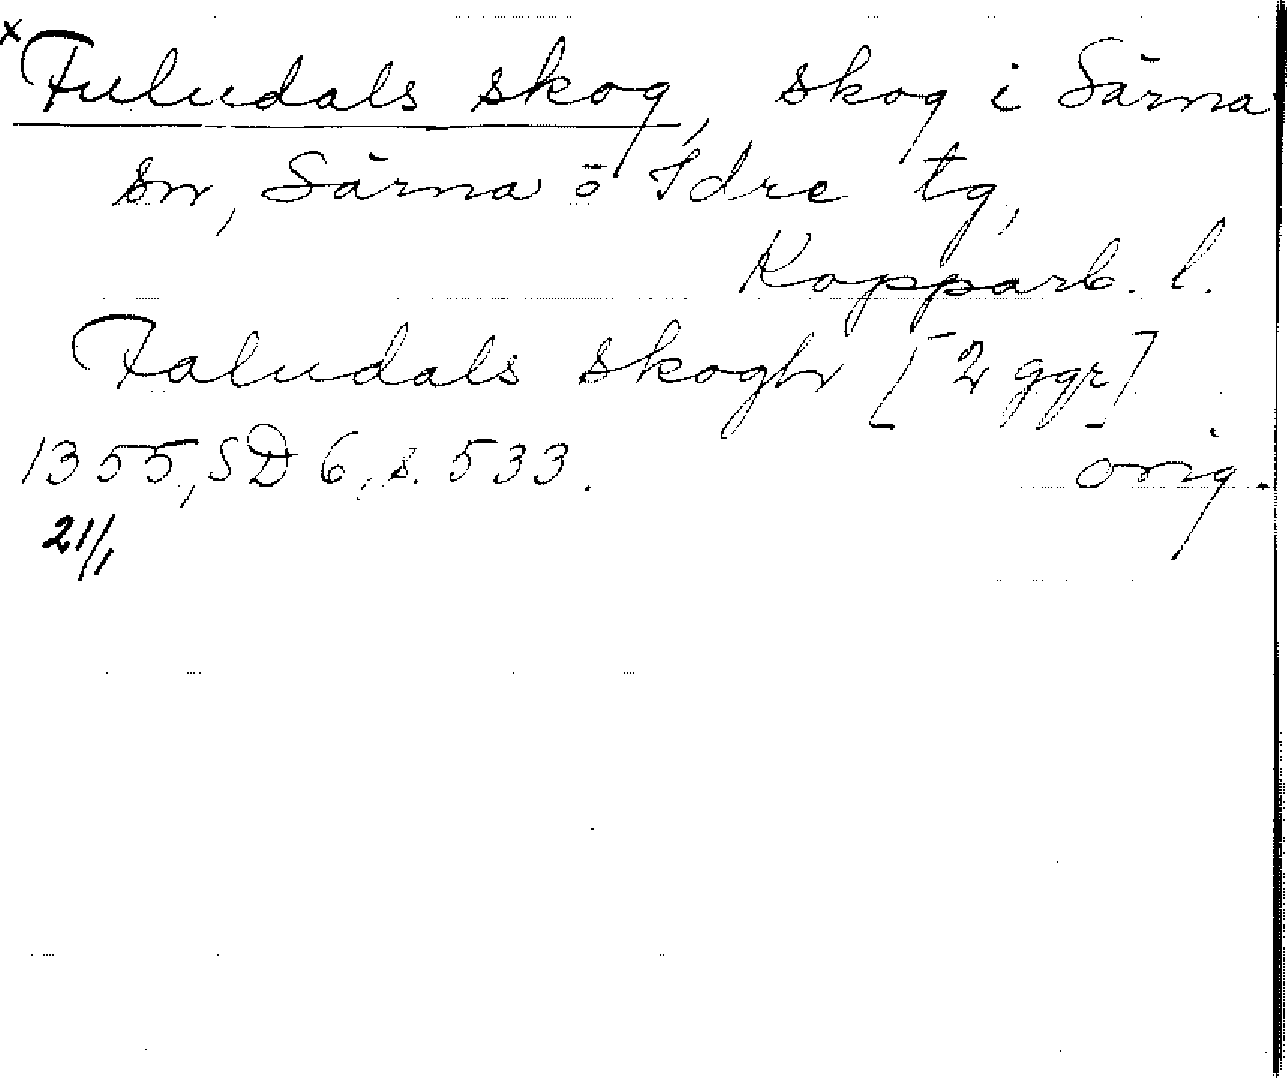 x Fuludals skog, skog i Särna
sn, Särna o Idre tg,
Kopparb. l.
Faludals skogh [2 ggr]
1355, SD 6, s. 533. orig.
21/1